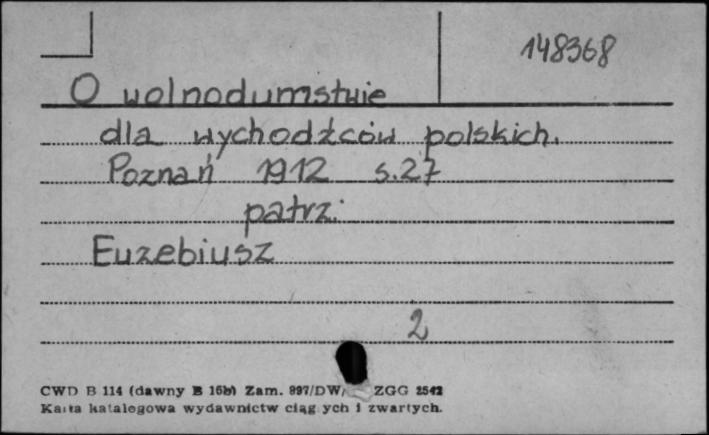 148368
O wolnodumstwie
dla wychodźców polskich.
Poznań 1912 s.27
patrz:
Euzebiusz
2
CWD B 114 (dawny B 16b) Zam. 997/DW/ ZGG 2542
Karta katalogowa wydawnictw ciąg ych i zwartych.